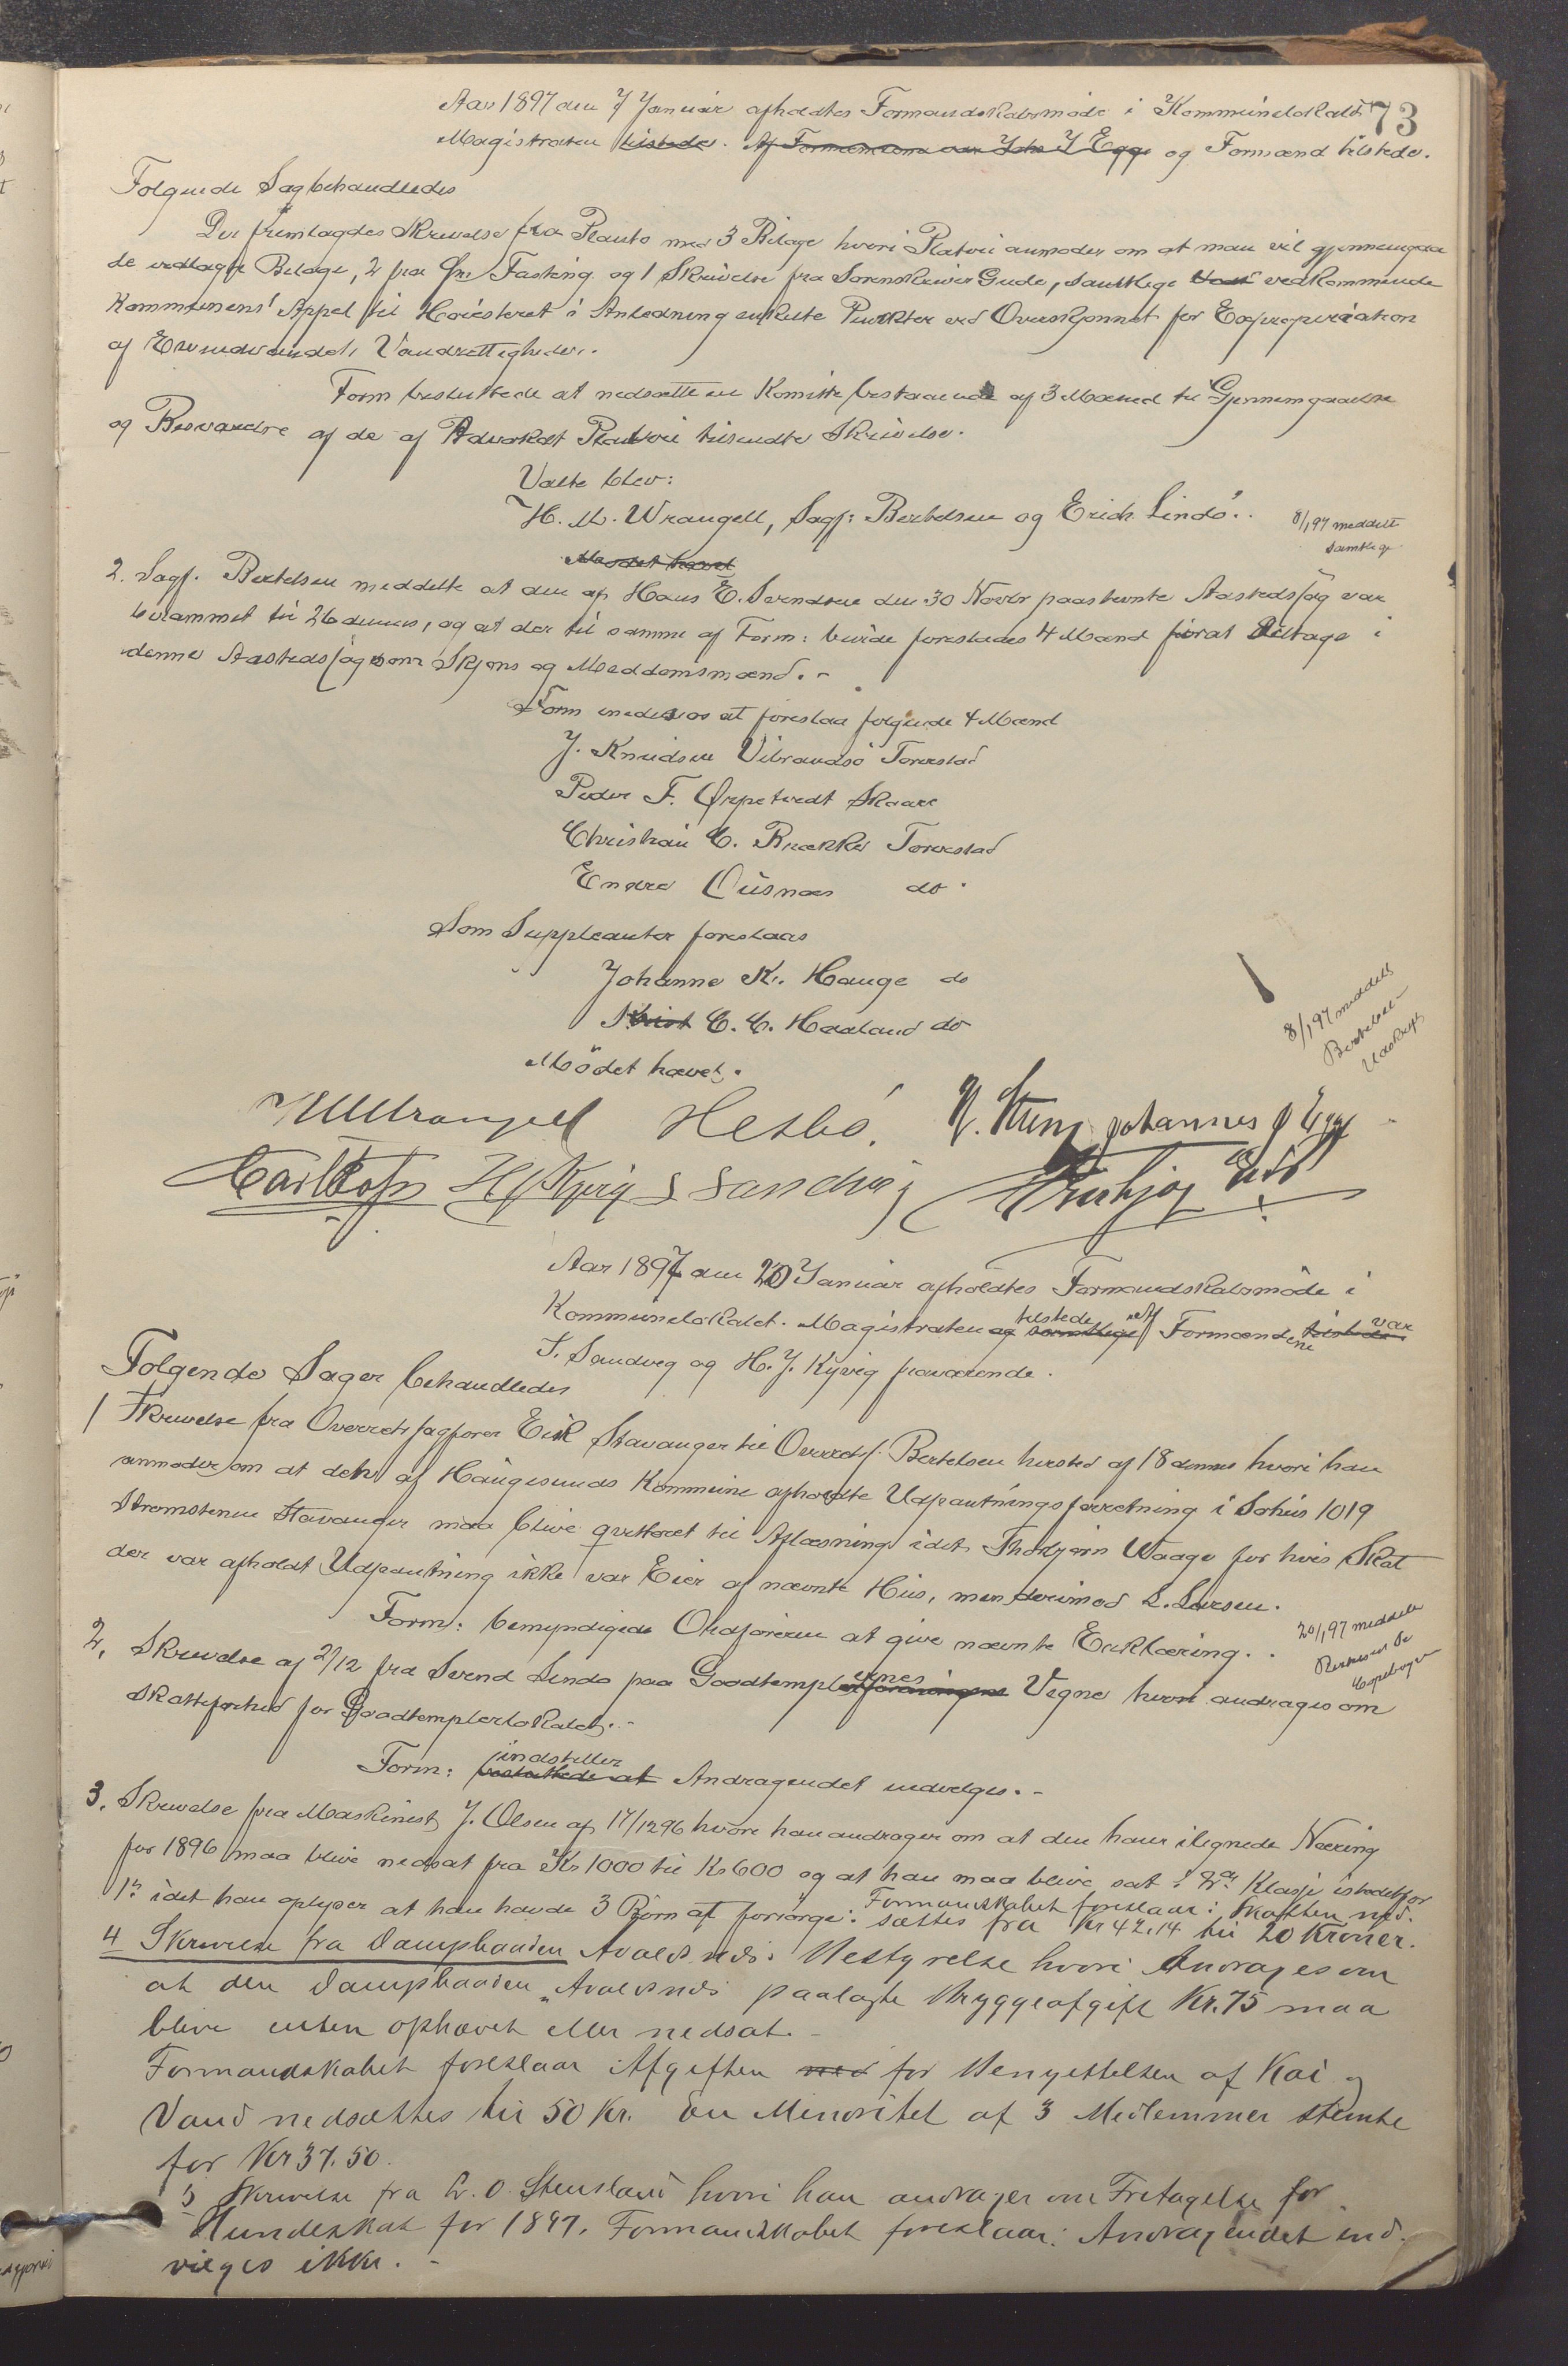 73
Aar 1897 den 7 Januar afholdtes Formandskabsmøde i Kommunelokalet
Magistraten tilstede. Af Formændene var Johs J Egge og Formænd tilstede.
Følgende Sag behandledes
Der fremlagdes Skrivelse fra Platou med 3 Bilage hvori Platou anmoder om at man vil gjennemgaa
de vedlagte Bilage, 2 fra Fasting og 1 Skrivelse fra Sorenskriver Gude, samtlige vedkommende
Kommunens Appel til Høiesteret i Anledning enkelte Punkter ved Overskjønnet for Expropriation
af Eivindsvandets Vandrettigheder.
Form besluttede at nedsætte en Komitte bestaaende af 3 Mænd til Gjennemgaaelse
og Besvarelse af de af Advokat Platou tilsendte Skrivelse.
Valte blev:
H. M. Wrangell, Sagf: Bertelsen og Erich Lindø.
8/1 97 meddelt
samtlige
Mødet hævet
2. Sagf. Bertelsen meddelte at den af Hans E. Svendsen den 30 Novbr paastevnte Aastedssag var
berammet til 26 dennes, og at der til samme af Form: burde foreslaaes 4 Mænd forat deltage i
denne Aastedssag som Skjøns og Meddomsmænd. -
Form enedes os at foreslaa følgende 4 Mænd
J. Knudsen Vibrandsø Torvestad
Peder F. Ørpetvedt Skaare
Christian C. Brække Torvestad
Endre Osnæs do
Som Suppleanter foreslaaes
Johanne Kr. Hauge do
C. C. Haaland do
Mödet hævet.
8/1 97 meddelt
Bertelsen
Udskrift
HMWrangell Hesbö. N. Steng Johannes J Egge
H J Kyvig S Sandvig
Aar 1897 den 20 Januar afholdtes Formandskabsmöde i
Kommunelokalet. Magistraten og samtlige tilstede. Af Formændene tilstede var
S. Sandvig og H. J. Kyvig fraværende.
Følgende Sager behandledes
1 Skrivelse fra Overretssagfører Eik Stavanger til Overretss. Bertelsen hersted af 18 dennes hvori han
anmoder om at den af Haugesunds Kommune afholdte Udpantningsforretning i Søhus 1019
Strømstenen Stavanger maa blive qvitteret til Aflæsning idet Thorbjørn Waage for hvis Skat
der var afholdt Udpantning ikke var Eier af nævnte Hus, men derimod L. Larsen.
Form: bemyndigede Ordføreren at give nævnte Erklæring.
20/1 97 meddelt
2. Skrivelse af 2/12 fra Svend Lindø paa Goodtemplerforeningens ernes Vegne hvori andrages om
Skattefrihed for Goodtemplerlokalet. -
Form: besluttede at indstiller Andragendet indvilges. -
3. Skrivelse fra Maskinist J. Olsen af 17/12 96 hvori han andrager om at den ham ilignede Næring
for 1896 maa blive nedsat fra Kr 1000 til Kr 600 og at han maa blive sat i 2den Klasse istedetfor
1ste idet han oplyser at han havde 3 Børn at forsørge. Formandskabet foreslaar: Skatten ned-
sættes fra Kr 42.14 til 20 Kroner.
4 Skrivelse fra Dampbaaden Avaldsnes's Bestyrelse hvori Andrages om
at den Dampbaaden "Avaldsnes paalagte Bryggeafgift Kr. 75 maa
blive enten ophævet eller nedsat. -
Formandskabet foreslaar Afgiften ned for Benyttelsen af Kai og
Vand nedsættes til 50 Kr. En Minoritet af 3 Medlemmer stemte
for Kr 37.50.
5 Skrivelse fra L. O. Stensland hvori han andrager om Fritagelse for
Hundeskat for 1897. Formandskabet foreslaar: Andragendet ind-
vilges ikke. -